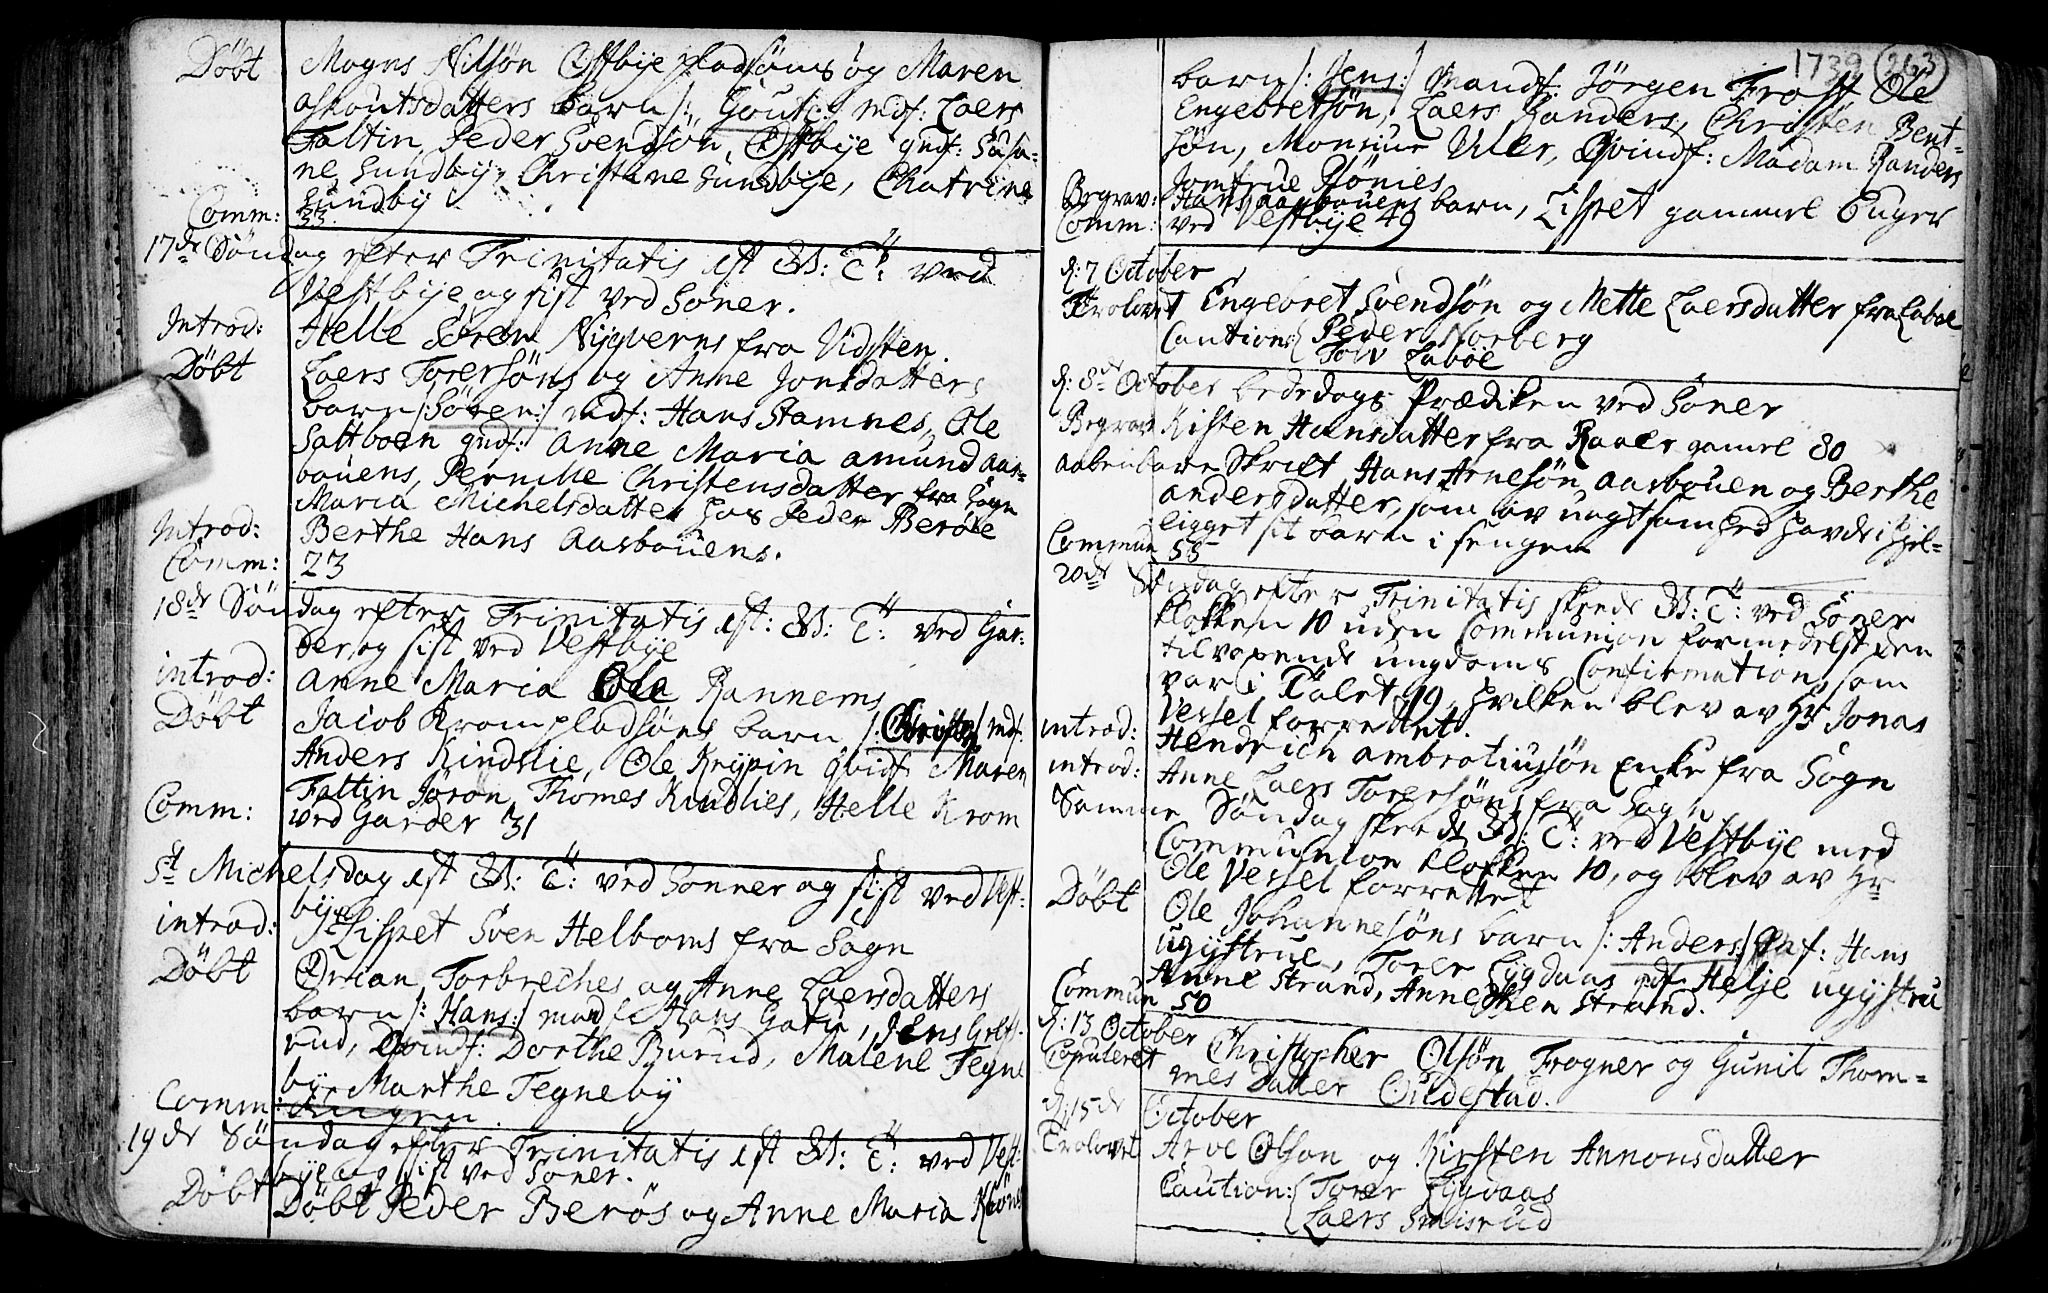 Döbt Mogns Nilsøn Østbye pladsöms og Maren
barn /: Goute :/ mdf: Laers
Faltin, Peder Svendsön, Østbye qvdf: Susa-
ne Sundby, Christine Sundbye, Chatrine
Sundby
Comm: 33.
17de Söndag efter Trinitatis est ved
Vestbye og sist ved Soner.
Introd: Helle Sören Nyqverns fra Vidsten.
Döbt Laers Torersöns og Anne Jonsdatters
barn /: Sören :/ mdf: Hans Stamnes, Ole
qvdf: Anne Maria Amund Aas-
bouens, Pernille Christensdatter fra Sogn
Maria Michelsdatter hos Peder Beröe
Introd: Berthe Hans Aasbouens.
Comm: 23
18de Söndag efter Trinitatis est: ved Gar-
der og sist ved Vestbye
introd: Anne Maria Ole Rannems
Döbt Jacob Krom pladsöns barn mdf:
Anders Kindslie, Ole Krypin qvidf: Maren
Faltin Joron Thomes Kindlies, Helle Krom
Comm: ved Garder 31
St Michelsdag est ved Sonner og sist ved Vest-
bye
introd: Lispet Sven Helboms fra Sogn
Döbt Torbreches og Anne Laersdatters
barn /: Hans :/ mandf: Hans Jens
rud, Qvindf: Dorthe Burud, Malene Tegne
by Marthe Tegneby
Comm: Ingen.
19de Söndag efter Trinitatis est ved Vest-
bye og sist ved Soner.
Döbt Döbt Peder Berös og Anne Maria
1739 263
barn /: Jens :/ Mandf: Jörgen Frost Ole
Engebretsön, Laers Randers, Christen Bent-
søn, Monsiur Uller, Qvindf: Madam Randers
Jomfrue
Begrav: Hans Aasbouens barn, Lispet gammel Enger
Comm: ved Vestbye 49
d: 7 October
Trolovet Engebret Svendsön og Mette Laersdatter fra Laböe
Caution: { Peder Norberg
Tolv Laböe
d: 8de October bededags Prædiken ved Soner
Begrav: Kisten Hansdatter fra Raaer gamel 80
Aabenbare Skrift Hans Arnesøn Aasbouen og Berthe
Andersdatter, som av uagtsomhed havde ihjel-
ligget sit barn i sengen
Commun 55
20de Söndag efter Trinitatis skede ved Soner
klokken 10 uden Communion formedelst den
tilvoxende ungdoms Confirmation, som
var i Talet 19, hvilken blev av Hr Jonas
Vessel forrettet.
introd: Hendrich Ambrotiussøn Enke fra Sogn
introd: Anne Laers Torersöns fra Sogn
Samme Söndag skede ved Vestbye med
Communion klokken 10, og blev av Hr
Ole Vessel forrettet
Döbt Ole Johannesöns barn /: Anders :/ Hans
ugystrue, Torer Lygdaas Helje ugystru
Anne Strand, Anne Strand.
Commun 50
d: 13 October
Copuleret Christopher Olsön Frogner og Gunil Thom-
mes Datter Gildestad.
d: 15de October
Trolovet Arve Olson og Kirsten Annonsdatter
Caution: { Torer Lygdaas
{ Laers Smisrud